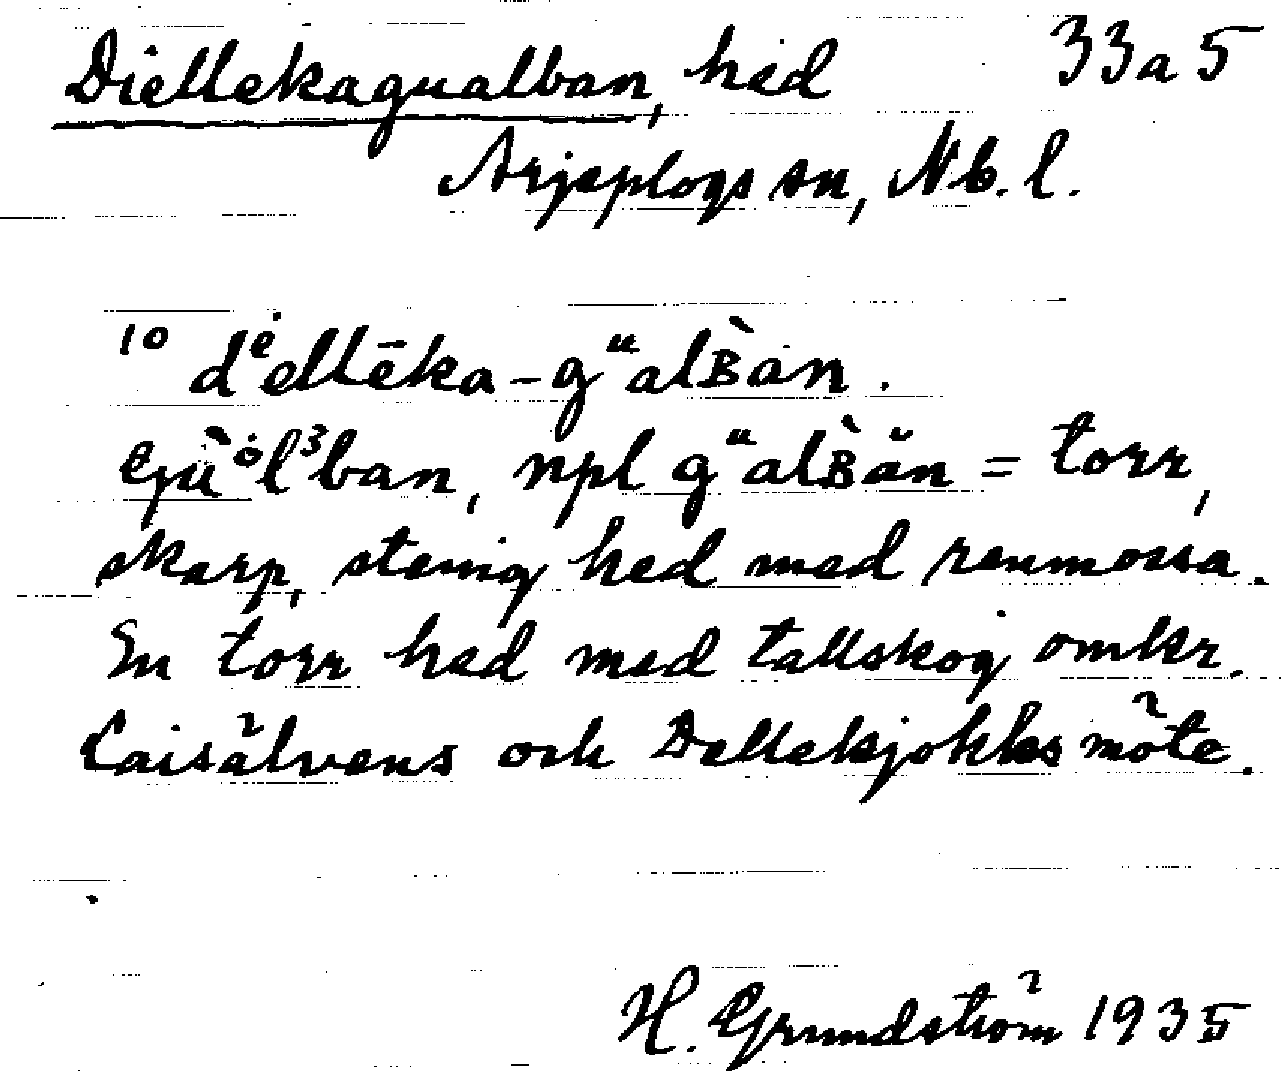 Diellekagualban, hed 33a5
Arjeplogs sn, Nb. l.
10 dᵉellēka-gᵘalB̀ȧn.
Gu̇̀ȯl³ban, npl gᵘalB̀än = torr,
skarp, stenig hed med renmossa.
En torr hed med tallskog omkr.
Laisälvens och Dellekjokks möte.
H. Grundström 1935